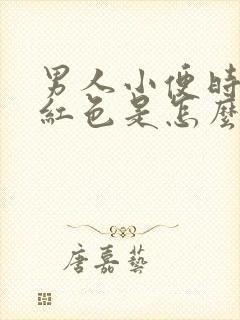 男人小便时
紅色是怎麼
唐嘉藝